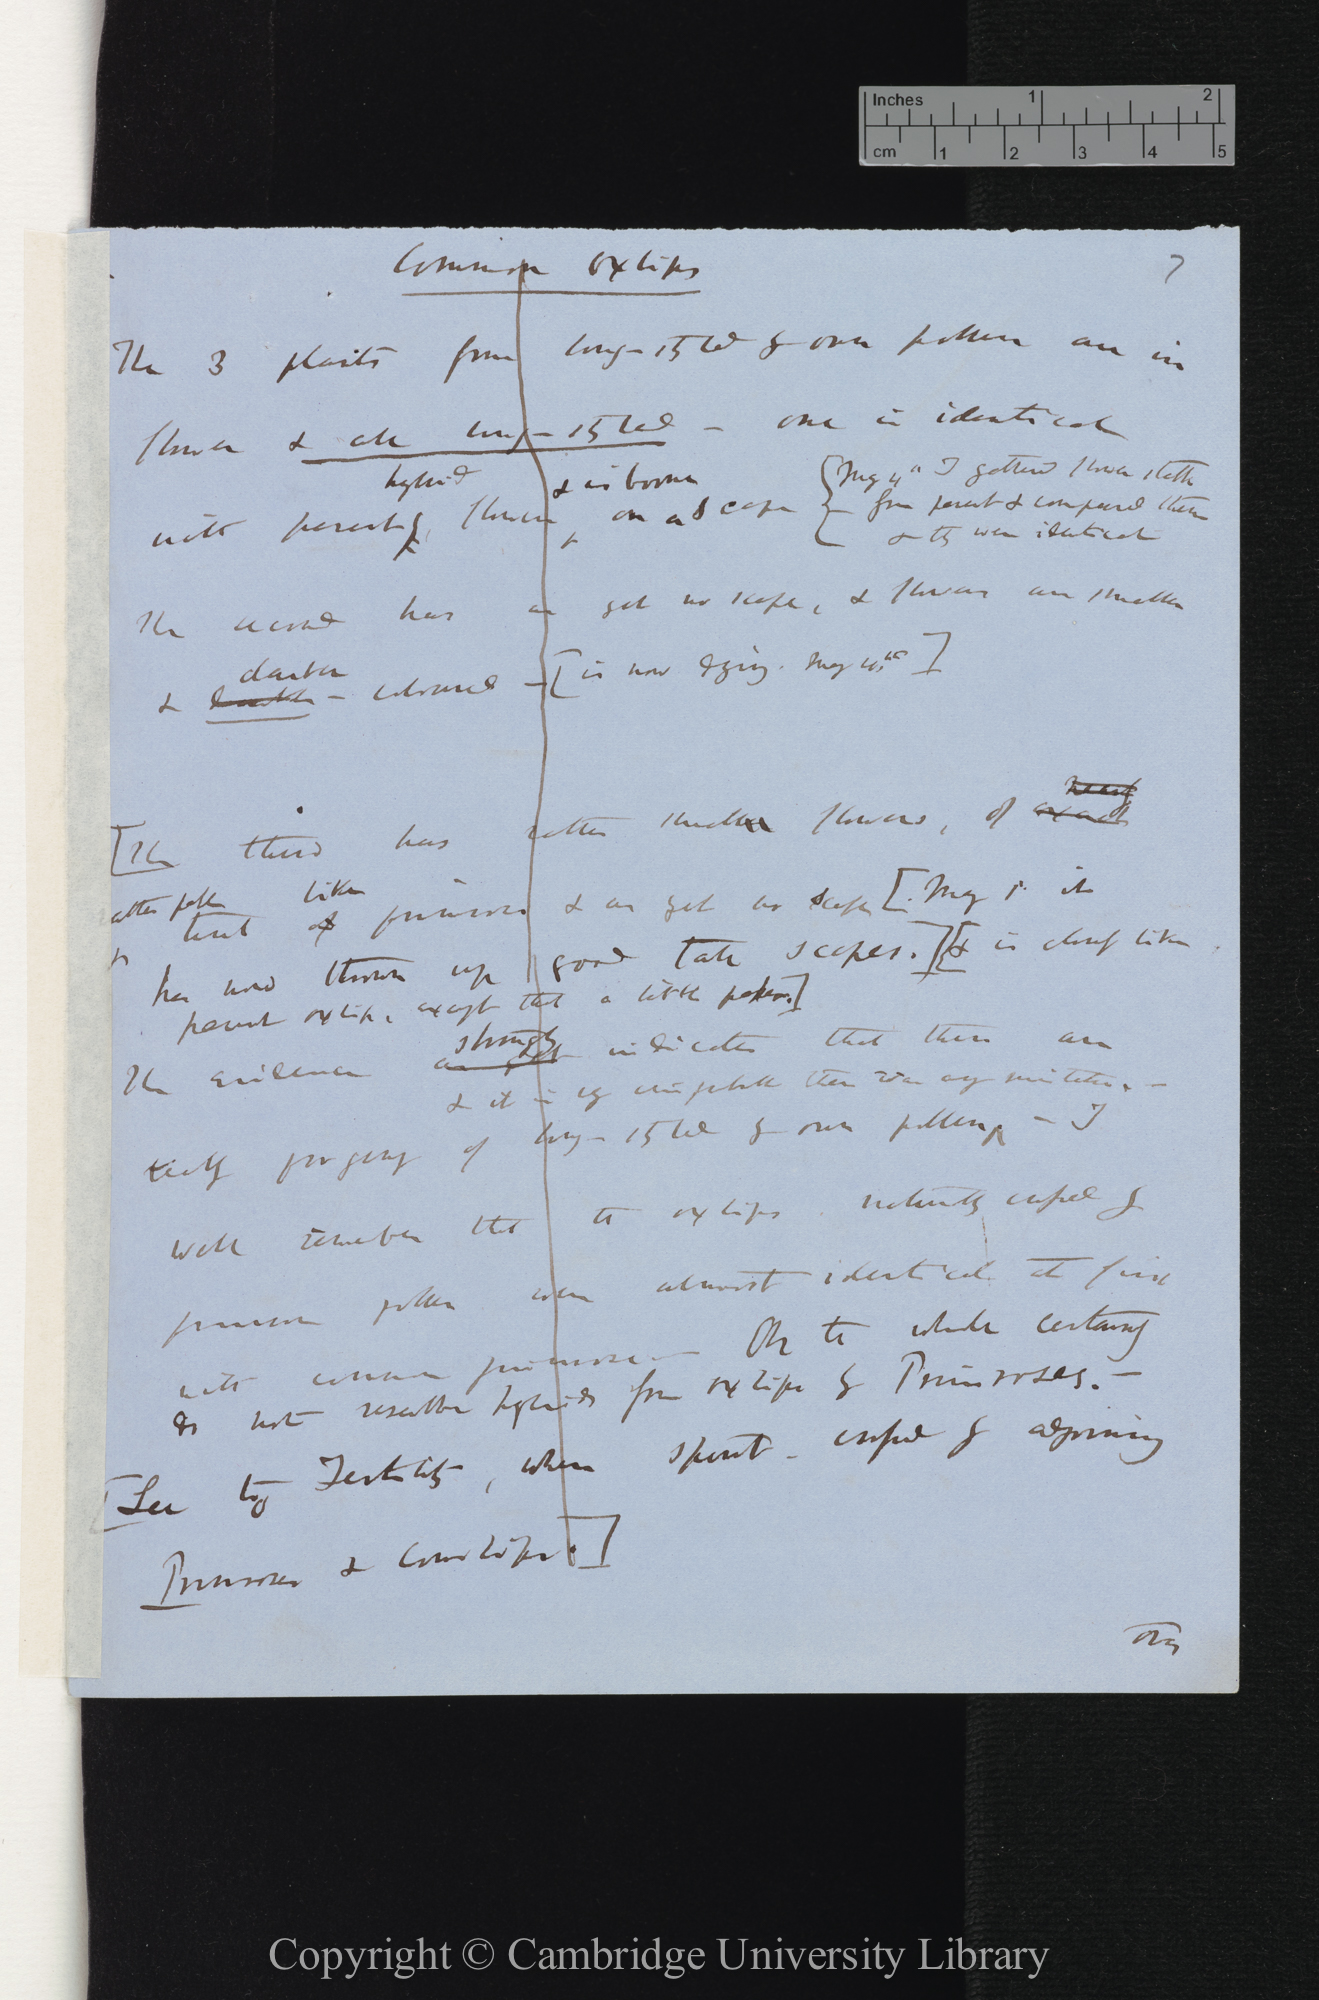 Inches 1 2
cm 1 2 3 4 5
7
Common Oxlips
The 3 plants from long-styled & own pollen are in
flower & all long-styled — one is identical
hybrid & is borne
with parent flower, on a scape
{May 4th I gathered flower stalk
from parent & compared them
& they were identical
The second has as yet no scape, & flowers are smaller
darker
& - coloured — [is now dying. May 11th]
nearly
[The third has rather smaller flowers, of exact
rather paler like
tint of primrose & as yet no scape [May 1st it
has now thrown up good tall scapes.] [& is closely like
parent oxlip, except tint a little paler.]
strongly
The evidence indicates that these are
& it is improbable there was any mistake. —
really progeny of long-styled & own pollen, — I
well remember that the oxlips naturally crossed by
primrose pollen were almost identical at first
with common primrose — On the whole certainly
do not resemble hybrids from oxlips & Primroses. —
[See to Fertility, when spont. crossed by adjoining
Primroses & Cowslips.]
Over
Copyright © Cambridge University Library